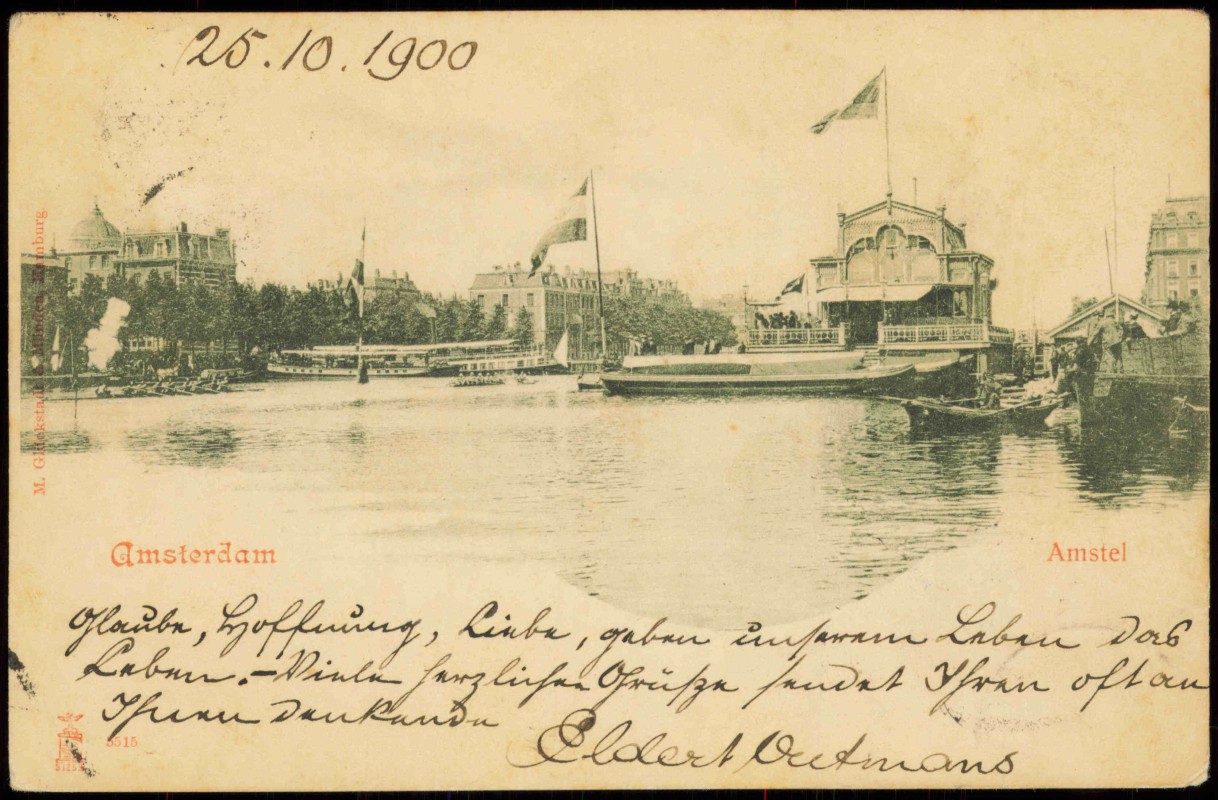 25.10.1900
M. Glückstadt & Münden, Hamburg.
Amsterdam
Amstel
Glaube, Hoffnung, Liebe, geben unserem Leben das
Leben. – Viele herzliche Grüße sendet Ihren oft an
Ihnen denkende
Eldert
5515